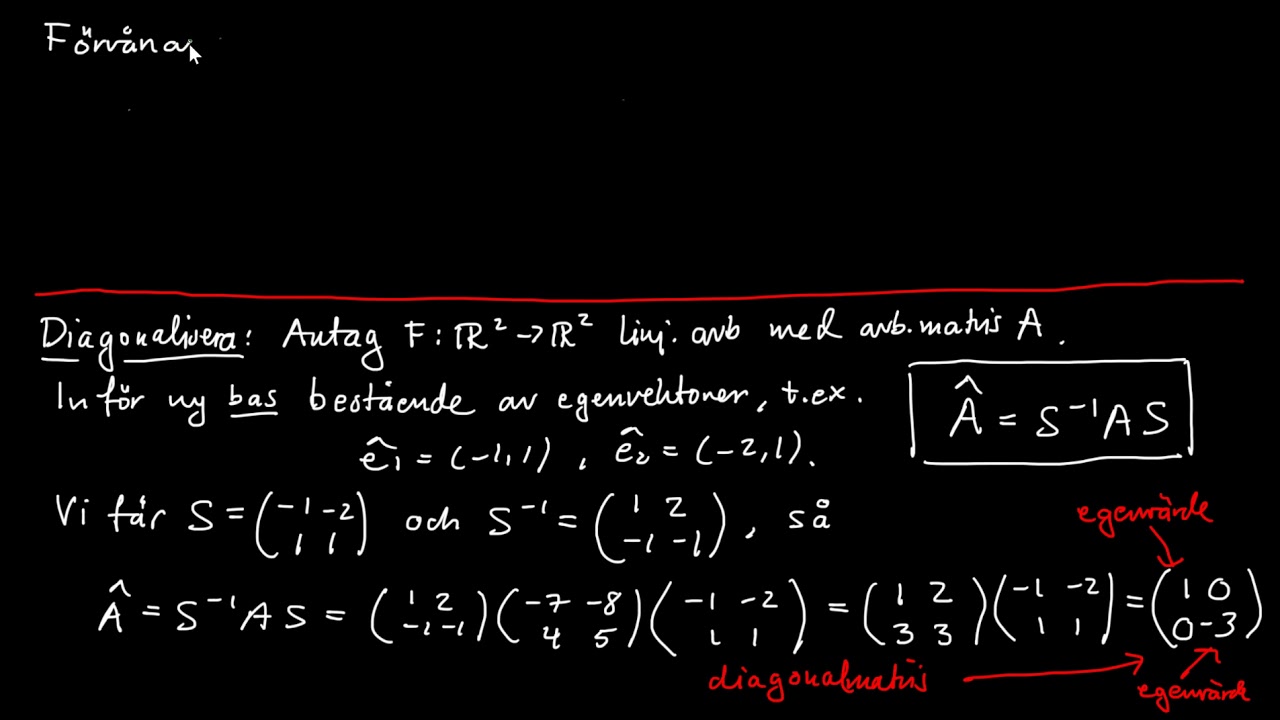 Förvåna
Diagonalisera: Antag F: ℝ² → ℝ² linj. avb med avb.matris A.
Inför ny bas bestående av egenvektorer, t.ex.
ê₁ = (-1,1), ê₂ = (-2,1).
Â = S⁻¹AS
Vi får S = (-1 -2; 1 1) och S⁻¹ = (1 2; -1 -1), så
egenvärde
Â = S⁻¹AS = (1 2; -1 -1)(-7 -8; 4 5)(-1 -2; 1 1) = (1 2; 3 3)(-1 -2; 1 1) = (1 0; 0 -3)
diagonalmatris → egenvärde